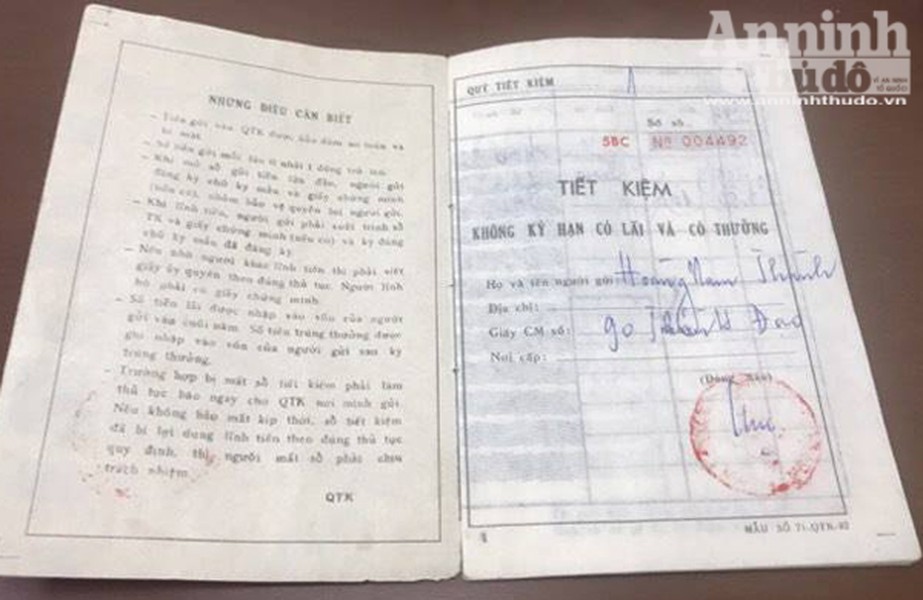 NHỮNG ĐIỀU CẦN BIẾT
- Tiền gửi vào QTK được bảo đảm an toàn và
bí mật.
- Số tiền gửi mỗi lần ít nhất 1 đồng trở lên.
- Khi mở sổ gửi tiền lần đầu, người gửi
đăng ký chữ ký mẫu và giấy chứng minh
(nếu có), nhằm bảo vệ quyền lợi người gửi.
- Khi lĩnh tiền, người gửi phải xuất trình sổ
TK và giấy chứng minh (nếu có) và ký đúng
chữ ký mẫu đã đăng ký.
- Nếu nhờ người khác lĩnh tiền thì phải viết
giấy ủy quyền theo đúng thủ tục. Người lĩnh
hộ phải có giấy chứng minh.
- Số tiền lãi được nhập vào vốn của người
gửi vào cuối năm. Số tiền trúng thưởng được
ghi nhập vào vốn của người gửi sau kỳ
trúng thưởng.
- Trường hợp bị mất sổ tiết kiệm phải làm
thủ tục báo ngay cho QTK nơi mình gửi.
Nếu không báo mất kịp thời, sổ tiết kiệm
đã bị lợi dụng lĩnh tiền theo đúng thủ tục
quy định, thì người mất sổ phải chịu
trách nhiệm
QTK
An ninh
Thủ đô
VÌ AN NINH
TỔ QUỐC
www.anninhthudo.vn
QUỸ TIẾT KIỆM
Số sh
5BC Nº 004492
TIẾT KIỆM
KHÔNG KỲ HẠN CÓ LÃI VÀ CÓ THƯỞNG
Họ và tên người gửi Hoàng Nam Thành
Địa chỉ:
Giấy CM số: 90
Nơi cấp:
(Đóng dấu)
MẪU SỐ 71-QTK-82